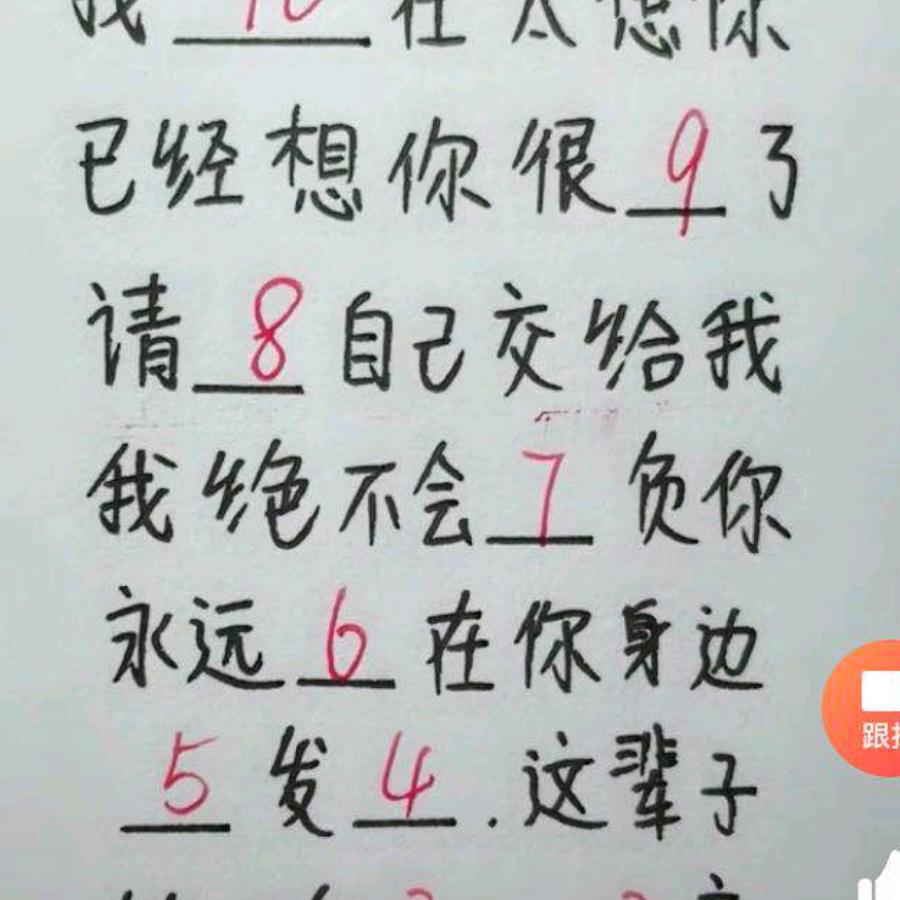 我 10 在太想你
已经想你很 9 了
请 8 自己交给我
我绝不会 7 负你
永远 6 在你身边
5 发 4 . 这辈子
跟拍